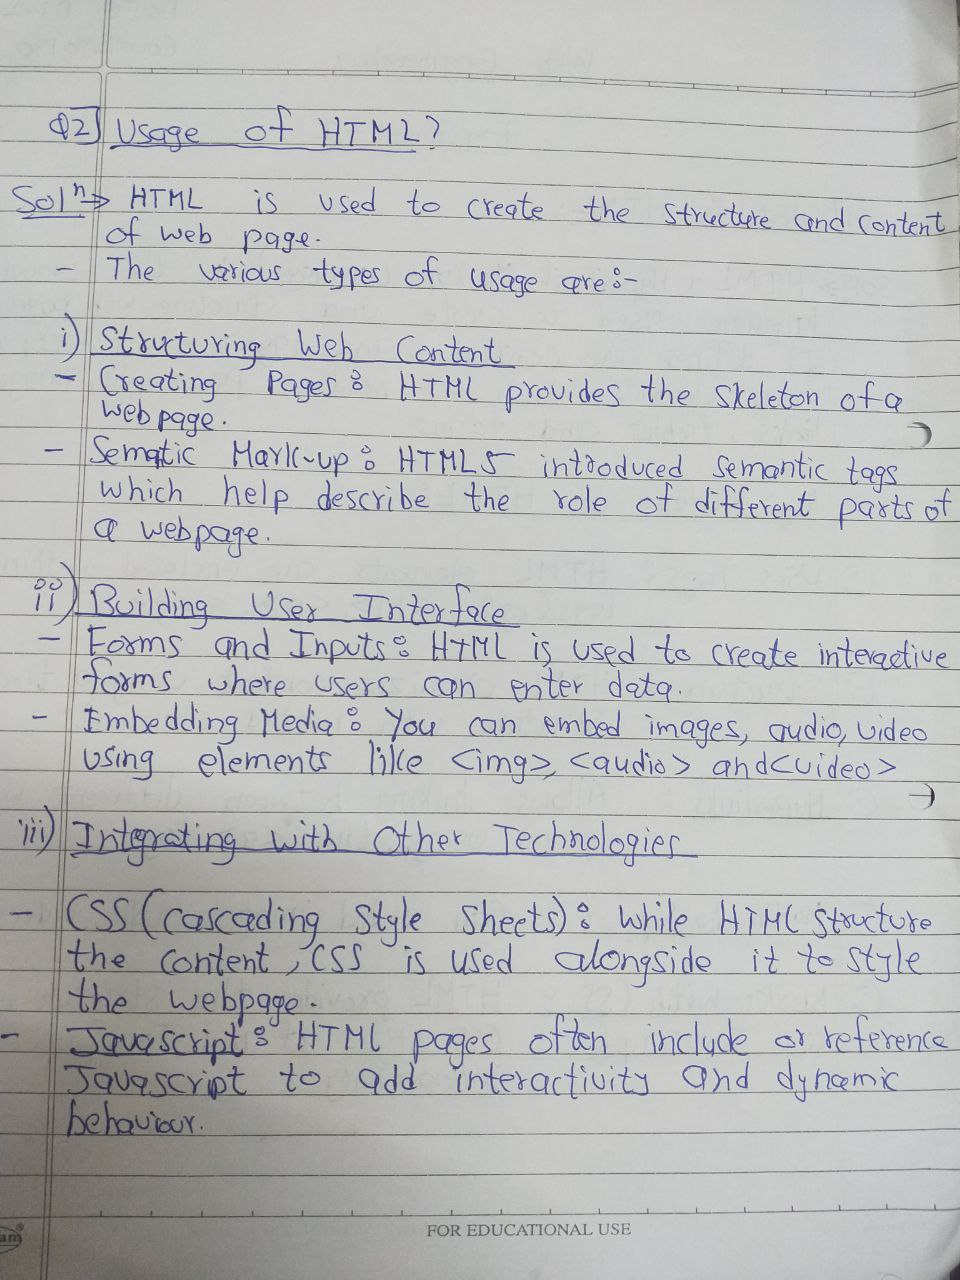 Q2] Usage of HTML?
Solⁿ⇒ HTML is used to create the structure and content
of web page.
- The various types of usage are:-
i) Structuring Web Content
- Creating Pages: HTML provides the skeleton of a
web page.
- Sematic Mark-up: HTML5 introduced semantic tags
which help describe the role of different parts of
a webpage.
ii) Building User Interface
- Forms and Inputs: HTML is used to create interactive
forms where users can enter data.
- Embedding Media: You can embed images, audio, video
using elements like <img>, <audio> and <video>
iii) Integrating with Other Technologies
- CSS (Cascading Style Sheets): While HTML structure
the content, CSS is used alongside it to style
the webpage.
- Javascript: HTML pages often include or reference
Javascript to add interactivity and dynamic
behaviour.
FOR EDUCATIONAL USE